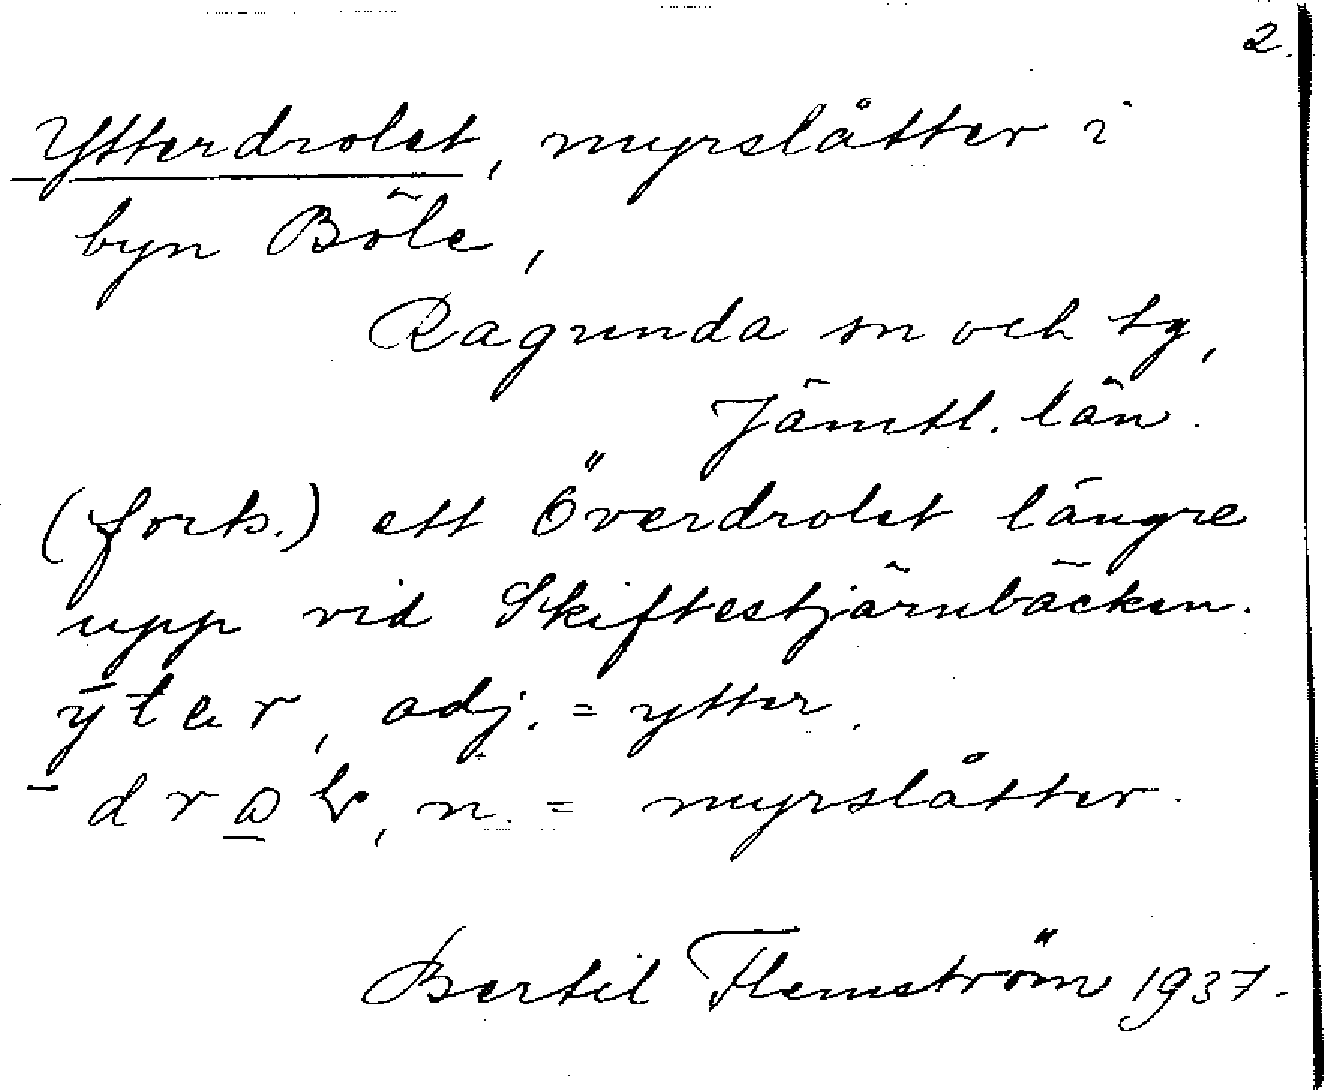 2.
Ytterdrolet, myrslåtter i
byn Böle,
Ragunda sn och tg,
Jämtl. län.
(forts.) ett Överdrolet längre
upp vid Skiftestjärnbäcken.
ȳtər, adj. = ytter.
n. = myrslåtter.
Bertil Flemström 1937.